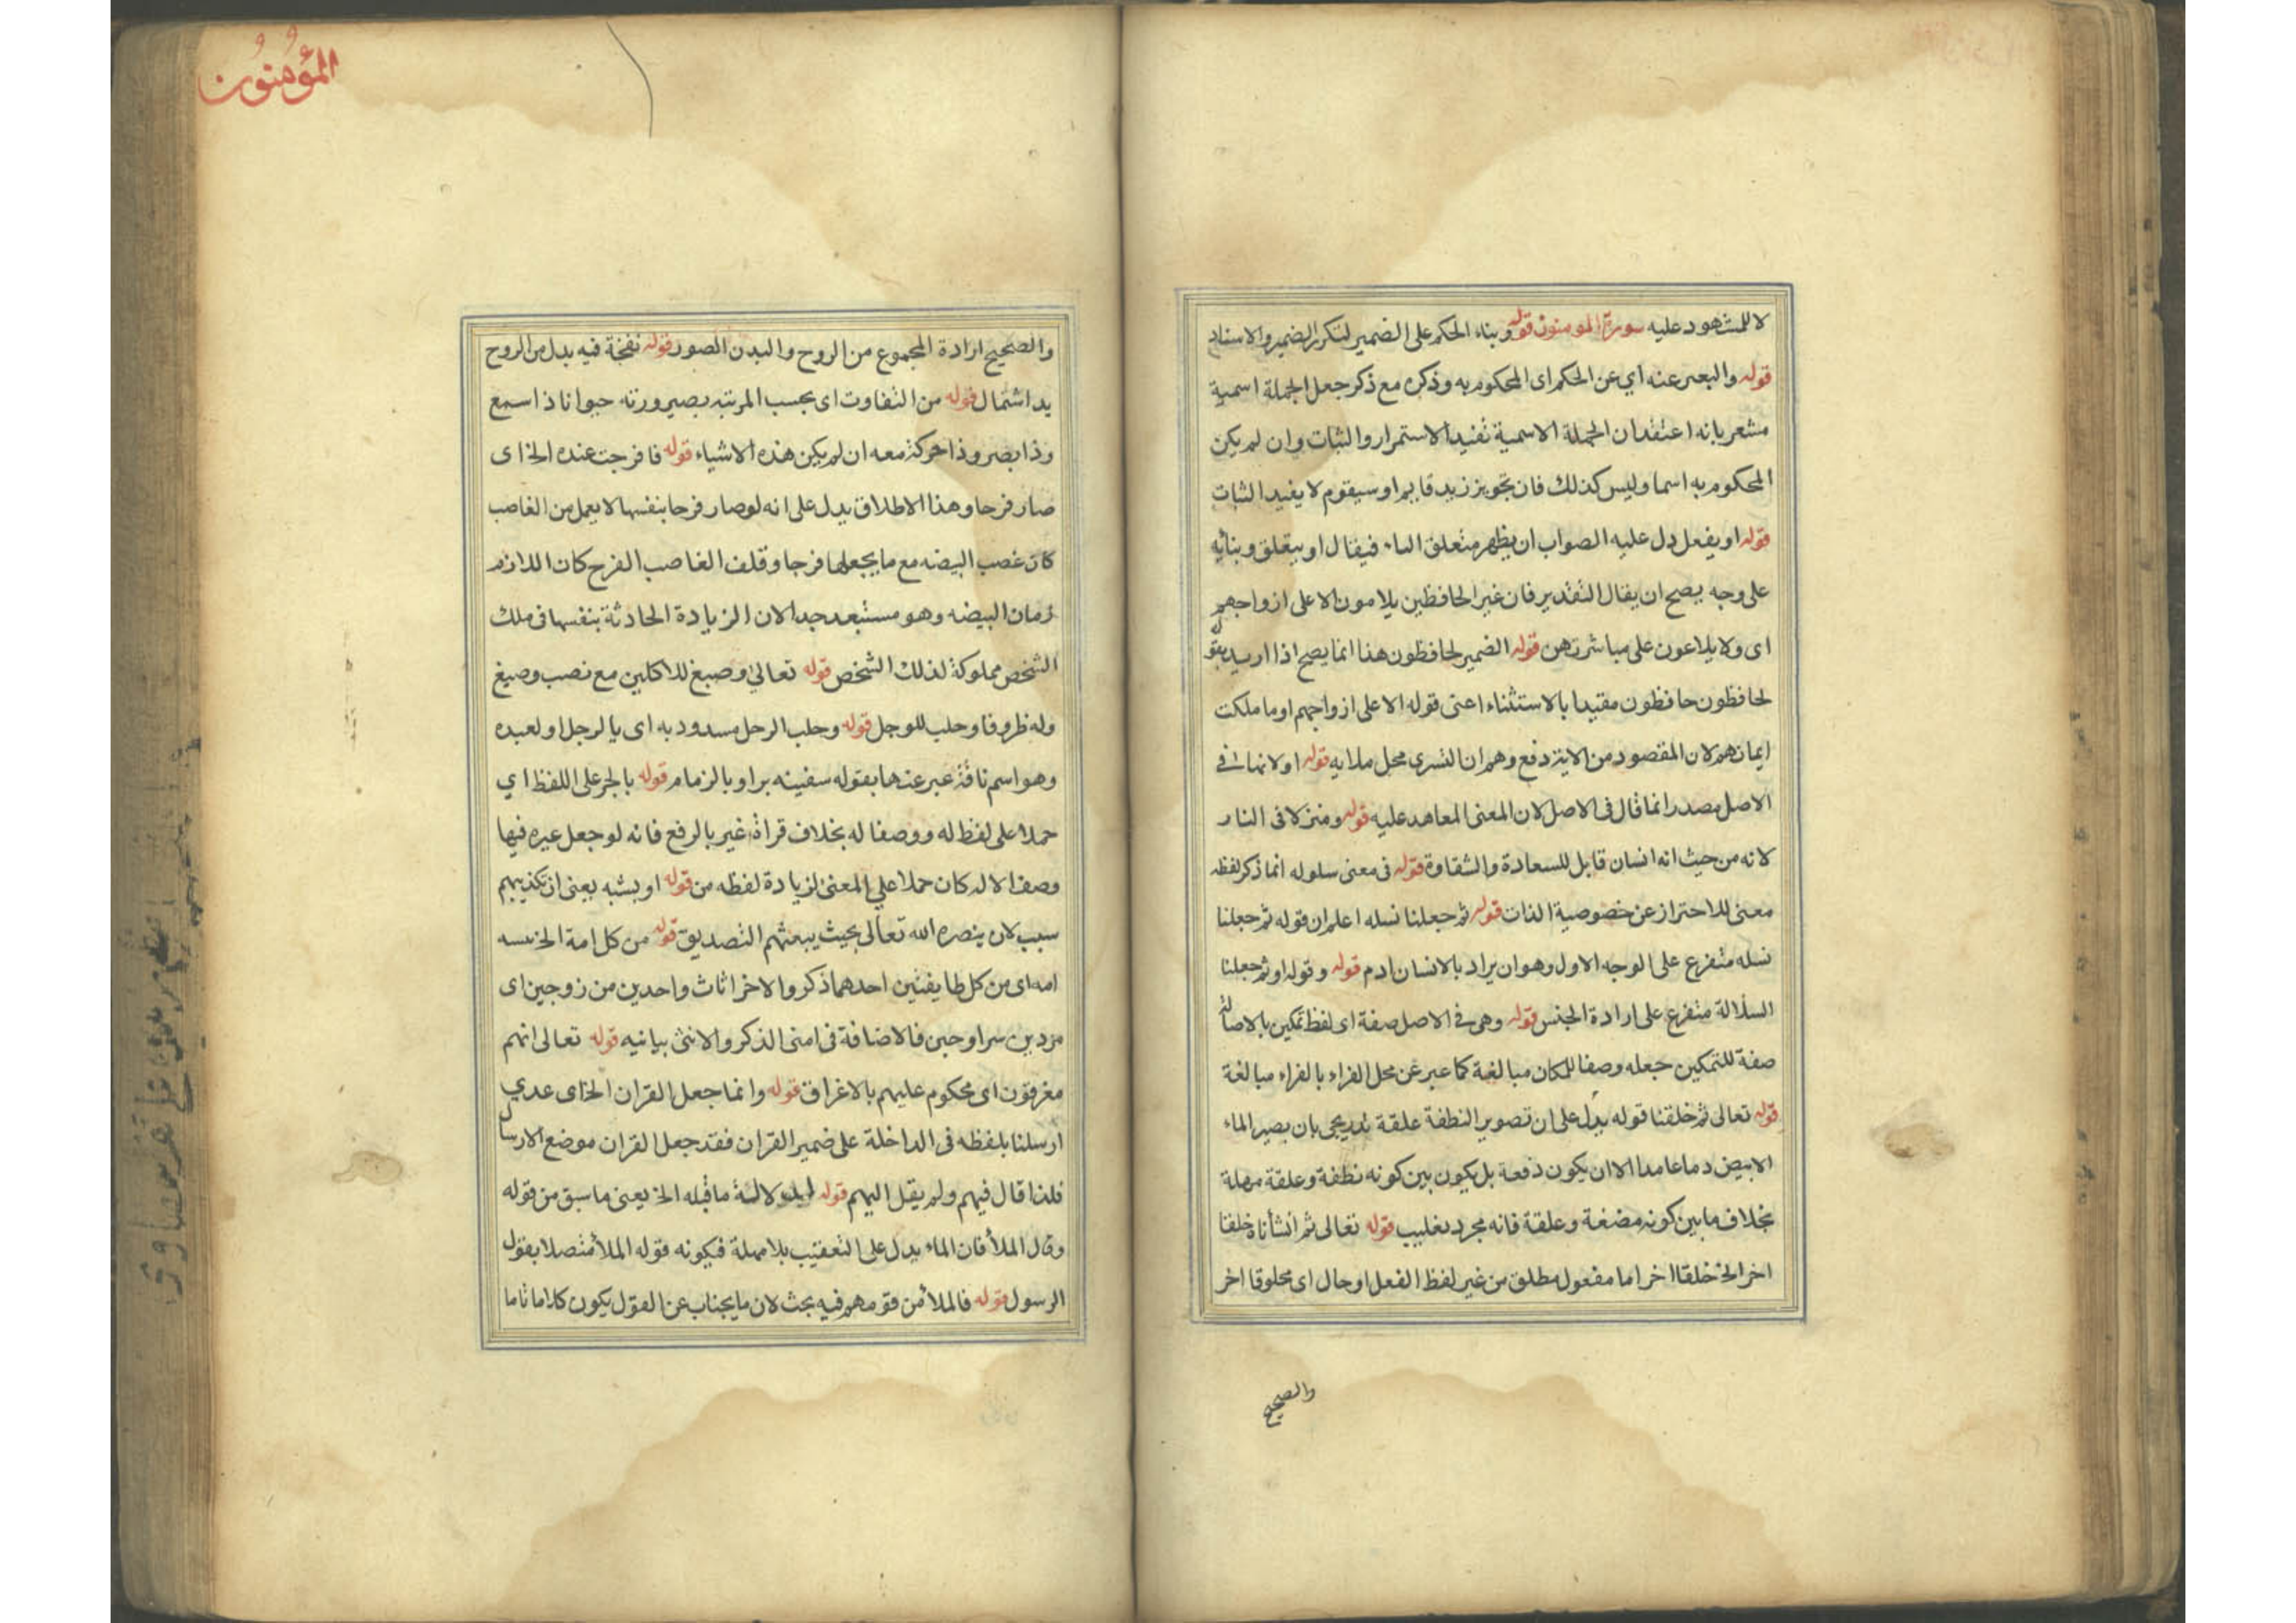 لا للمشهود عليه سورة المومنون قوله وبناء الحكم على الضمير لتكرر الضمير والاسناد
قوله والبعر عنه اي عن الحكم اى المحكوم به وذكره مع ذكر جعل الجملة اسمية
مشعر بانه اعتقد ان الجملة الاسمية تفيد الاستمرار والثبات وان لم يكن
المحكوم به اسما وليس كذلك فان تجويز زيد قايم او سيقوم لا يفيد الثبات
قوله او يفعل دل عليه الصواب ان يظهر متعلق الباء فيقال او يتعلق وبنائه
على وجه يصح ان يقال التقدير فان غير الحافظين يلامون الا على ازواجهم
اى ولا يلاعون على مباشرتهن قوله الضمير لحافظون هذا انما يصح اذا اريد بقوله
لحافظون حافظون مقيدا بالاستثناء اعنى قوله الا على ازواجهم او ما ملكت
ايمانهم لان المقصود من الاية دفع وهم ان التسرى محل ملايه قوله او لانها فى
الاصل مصدر انما قال فى الاصل لان المعنى المعاهد عليه قوله ومنزلا فى النار
لانه من حيث انه انسان قابل للسعادة والشقاوة قوله فى معنى سلوله انما ذكر لفظه
معنى للاحتراز عن خصوصية الذات قوله ثم جعلنا نسله اعلم ان قوله ثم جعلنا
نسله متفرع على الوجه الاول وهو ان يراد بالانسان ادم قوله وقوله او ثم جعلنا
السلالة متفرع على ارادة الجنس قوله وهى فى الاصل صفة اى لفظ تمكين بالاصالة
صفة للتمكين جعله وصفا للمكان مبالغة كما عبر عن محل القراء بالقراء مبالغة
قوله تعالى ثم خلقنا قوله يدل على ان تصوير النطفة علقة تدريجى بان يصير الماء
الابيض دما عامدا الا ان يكون دفعة بل يكون بين كونه نطفة وعلقة مهلة
بخلاف ما بين كونه مضغة وعلقة فانه مجرد تغليب قوله تعالى ثم انشاناه خلقا
اخر الخ خلقا اخر اما مفعول مطلق من غير لفظ الفعل او حال اى مخلوقا اخر
والصحيح
المؤمنون
والصحيح ارادة المجموع من الروح والبدن الصور قوله نفخة فيه بدل من الروح
يد اشتمال قوله من التفاوت اى بحسب المرتبه بصيرورته حيوانا ذا سمع
وذا بصر وذا حركة معه ان لم يكن هذه الاشياء قوله فافرجت عنده الخ اى
صار فرخا وهذا الاطلاق يدل على انه لو صار فرخا بنفسها لا يعمل من الغاصب
كان غصب البيضه مع ما يجعلها فرخا وقلف الغاصب الفرح كان اللازم
زمان البيضه وهو مستبعد جدا لان الزيادة الحادثة بنفسها فى ملك
الشخص مملوكة لذلك الشخص قوله تعالى وصبغ للاكلين مع نصب وصبغ
وله ظروفا وحلب للوجل قوله وحلب الرحل مسدود به اى يا لرجل او لعبده
وهو اسم ناقة عبر عنها بقوله سفينه برا وبالزمام قوله بالجر على اللفظ اي
حملا على لفظ له ووصفا له بخلاف قراة غير بالرفع فانه لو جعل غيره فيها
وصف الاله كان حملا علي المعنى لزيادة لفظه من قوله او بشبه يعنى ان تكذيبهم
سبب لان ينصره الله تعالى بحيث يبعثهم التصديق قوله من كل امة الخ
امه اى من كل طايفتين احدهما ذكر والاخر اناث واحدين من زوجين اى
مزدين سراوجين فالاضافة فى امنى الذكر والانثى بيانيه قوله تعالى انهم
مغرقون اى محكوم عليهم بالاغراق قوله وانما جعل القران الخ اى عدي
ارسلنا بلفظه فى الداخلة على ضمير القران فقد جعل القران موضع الارسال
فلذا قال فيهم ولم يقل اليهم قوله لدلالة ما قبله الخ يعنى ما سبق من قوله
وقال الملأ فان الماء يدل على التعقيب بلا مهلة فبكونه قوله الملأ متصلا بقول
الرسول قوله فالملأ من قومهم فيه بحث لان ما يجناب عن القول يكون كلاما ثاما